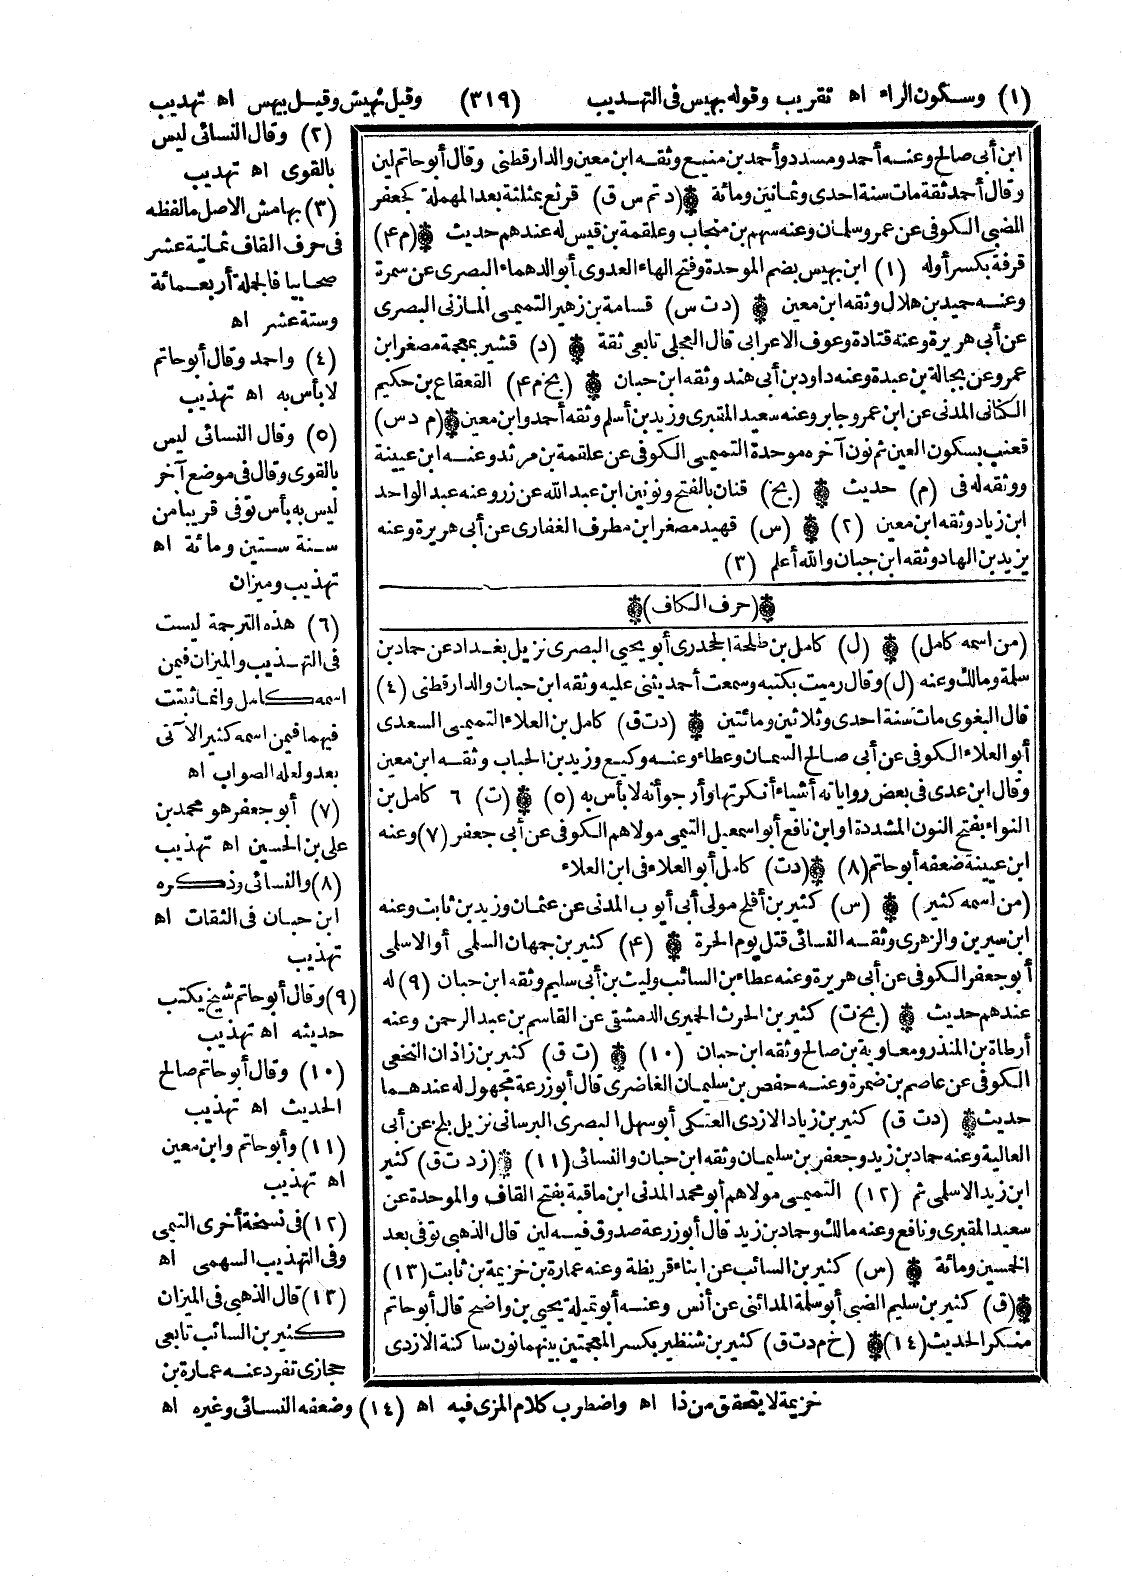 (١) وسكون الراء اه تقريب وقوله بهيس فى التهذيب (٣١٩) وقيل نهيش وقيل بيهس اه تهذيب
ابن أبى صالح وعنه أحمد ومسدد وأحمد بن منيع وثقه ابن معين والدارقطنى وقال أبو حاتم لين
وقال أحمد ثقة مات سنة احدى وثمانين ومائة (د تم س ق) قرثع بمثلثة بعد المهملة كجعفر
الضبى الكوفى عن عمر وسلمان وعنه سهم بن منجاب وعلقمة بن قيس له عندهم حديث (م ۴)
قرفة بكسر أوله (١) ابن بهيس بضم الموحدة وفتح الهاء العدوى أبو الدهماء البصرى عن سمرة
وعنه حميد بن هلال وثقه ابن معين (د ت س) قسامة بن زهير التميمى المازنى البصرى
عن أبى هريرة وعنه قتادة وعوف الاعرابى قال العجلى تابعى ثقة (د) قشير بمعجمة مصغر ابن
عمرو عن بجالة بن عبدة وعنه داود بن أبى هند وثقه ابن حبان (بخ م ۴) القعقاع بن حكيم
الكنانى المدنى عن ابن عمر وجابر وعنه سعيد المقبرى وزيد بن أسلم وثقه أحمد وابن معين (م د س)
قعنب بسكون العين ثم نون آخره موحدة التميمى الكوفى عن علقمة بن مرثد وعنه ابن عيينة
ووثقه له فى (م) حديث (بخ) قنان بالفتح ونونين ابن عبد الله عن زر وعنه عبد الواحد
ابن زياد وثقه ابن معين (٢) (س) قهيد مصغر ابن مطرف الغفارى عن أبى هريرة وعنه
يزيد بن الهاد وثقه ابن حبان والله أعلم (٣)
(حرف الكاف)
(من اسمه كامل) (ل) كامل بن طلحة الجحدرى أبو يحيى البصرى نزيل بغداد عن حماد بن
سلمة ومالك وعنه (ل) وقال رميت بكتبه وسمعت أحمد يثنى عليه وثقه ابن حبان والدارقطنى (٤)
قال البغوى مات سنة احدى وثلاثين ومائتين (د ت ق) كامل بن العلاء التميمى السعدى
أبو العلاء الكوفى عن أبى صالح السمان وعطاء وعنه وكيع وزيد بن الحباب وثقه ابن معين
وقال ابن عدى فى بعض رواياته أشياء أنكرتها وأرجو أنه لا بأس به (٥) (ت) ٦ كامل بن
النواء بفتح النون المشددة او ابن نافع أبو اسمعيل التيمى مولاهم الكوفى عن أبى جعفر (٧) وعنه
ابن عيينة ضعفه أبو حاتم (٨) (د ت) كامل أبو العلاء فى ابن العلاء
(من اسمه كثير) (س) كثير بن أفلح مولى أبى أيوب المدنى عن عثمان وزيد بن ثابت وعنه
ابن سيرين والزهرى وثقه النسائى قتل يوم الحرة (۴) كثير بن جهان السلمى أو الاسلمى
أبو جعفر الكوفى عن أبى هريرة وعنه عطاء بن السائب وليث بن أبى سليم وثقه ابن حبان (٩) له
عندهم حديث (بخ ت) كثير بن الحرث الحميرى الدمشقى عن القاسم بن عبد الرحمن وعنه
أرطاة بن المنذر ومعاوية بن صالح وثقه ابن حبان (١٠) (ت ق) كثير بن زاذان النخعى
الكوفى عن عاصم بن ضمرة وعنه حفص بن سليمان الغاضرى قال أبو زرعة مجهول له عندهما
حديث (د ت ق) كثير بن زياد الازدى العتكى أبو سهل البصرى البرسانى نزيل بلخ عن أبى
العالية وعنه حماد بن زيد وجعفر بن سليمان وثقه ابن حبان والنسائى (١١) (ز د ت ق) كثير
ابن زيد الاسلمى ثم (١٢) التميمى مولاهم أبو محمد المدنى ابن ماقبة بفتح القاف والموحدة عن
سعيد المقبرى ونافع وعنه مالك وحماد بن زيد قال أبو زرعة صدوق فيه لين قال الذهبى توفى بعد
الخمسين ومائة (س) كثير بن السائب عن ابناء قريظة وعنه عمارة بن خزيمة بن ثابت (١٣)
(ق) كثير بن سليم الضبى أبو سلمة المدائنى عن أنس وعنه أبو تميلة يحيى بن واضح قال أبو حاتم
منكر الحديث (١٤) (خ م د ت ق) كثير بن شنظير بكسر المعجمتين بينهما نون ساكنة الازدى
(٢) وقال النسائى ليس
بالقوى اه تهذيب
(٣) بهامش الاصل مالفظه
فى حرف القاف ثمانية عشر
صحابيا فالجملة أربعمائة
وستة عشر اه
(٤) واحمد وقال أبو حاتم
لا بأس به اه تهذيب
(٥) وقال النسائى ليس
بالقوى وقال فى موضع آخر
ليس به بأس توفى قريبا من
سنة ستين ومائة اه
تهذيب وميزان
(٦) هذه الترجمة ليست
فى التهذيب والميزان فيمن
اسمه كامل وانما ثبتت
فيهما فيمن اسمه كثير الآتى
بعد ولعله الصواب اه
(٧) أبو جعفر هو محمد بن
على بن الحسين اه تهذيب
(٨) والنسائى وذكره
ابن حبان فى الثقات اه
تهذيب
(٩) وقال أبو حاتم شيخ يكتب
حديثه اه تهذيب
(١٠) وقال أبو حاتم صالح
الحديث اه تهذيب
(١١) وأبو حاتم وابن معين
اه تهذيب
(١٢) فى نسخة أخرى التيمى
وفى التهذيب السهمى اه
(١٣) قال الذهبى فى الميزان
كثير بن السائب تابعى
حجازى تفرد عنه عمارة بن
خزيمة لا يتحقق من ذا اه واضطرب كلام المزى فيه اه (١٤) وضعفه النسائى وغيره اه